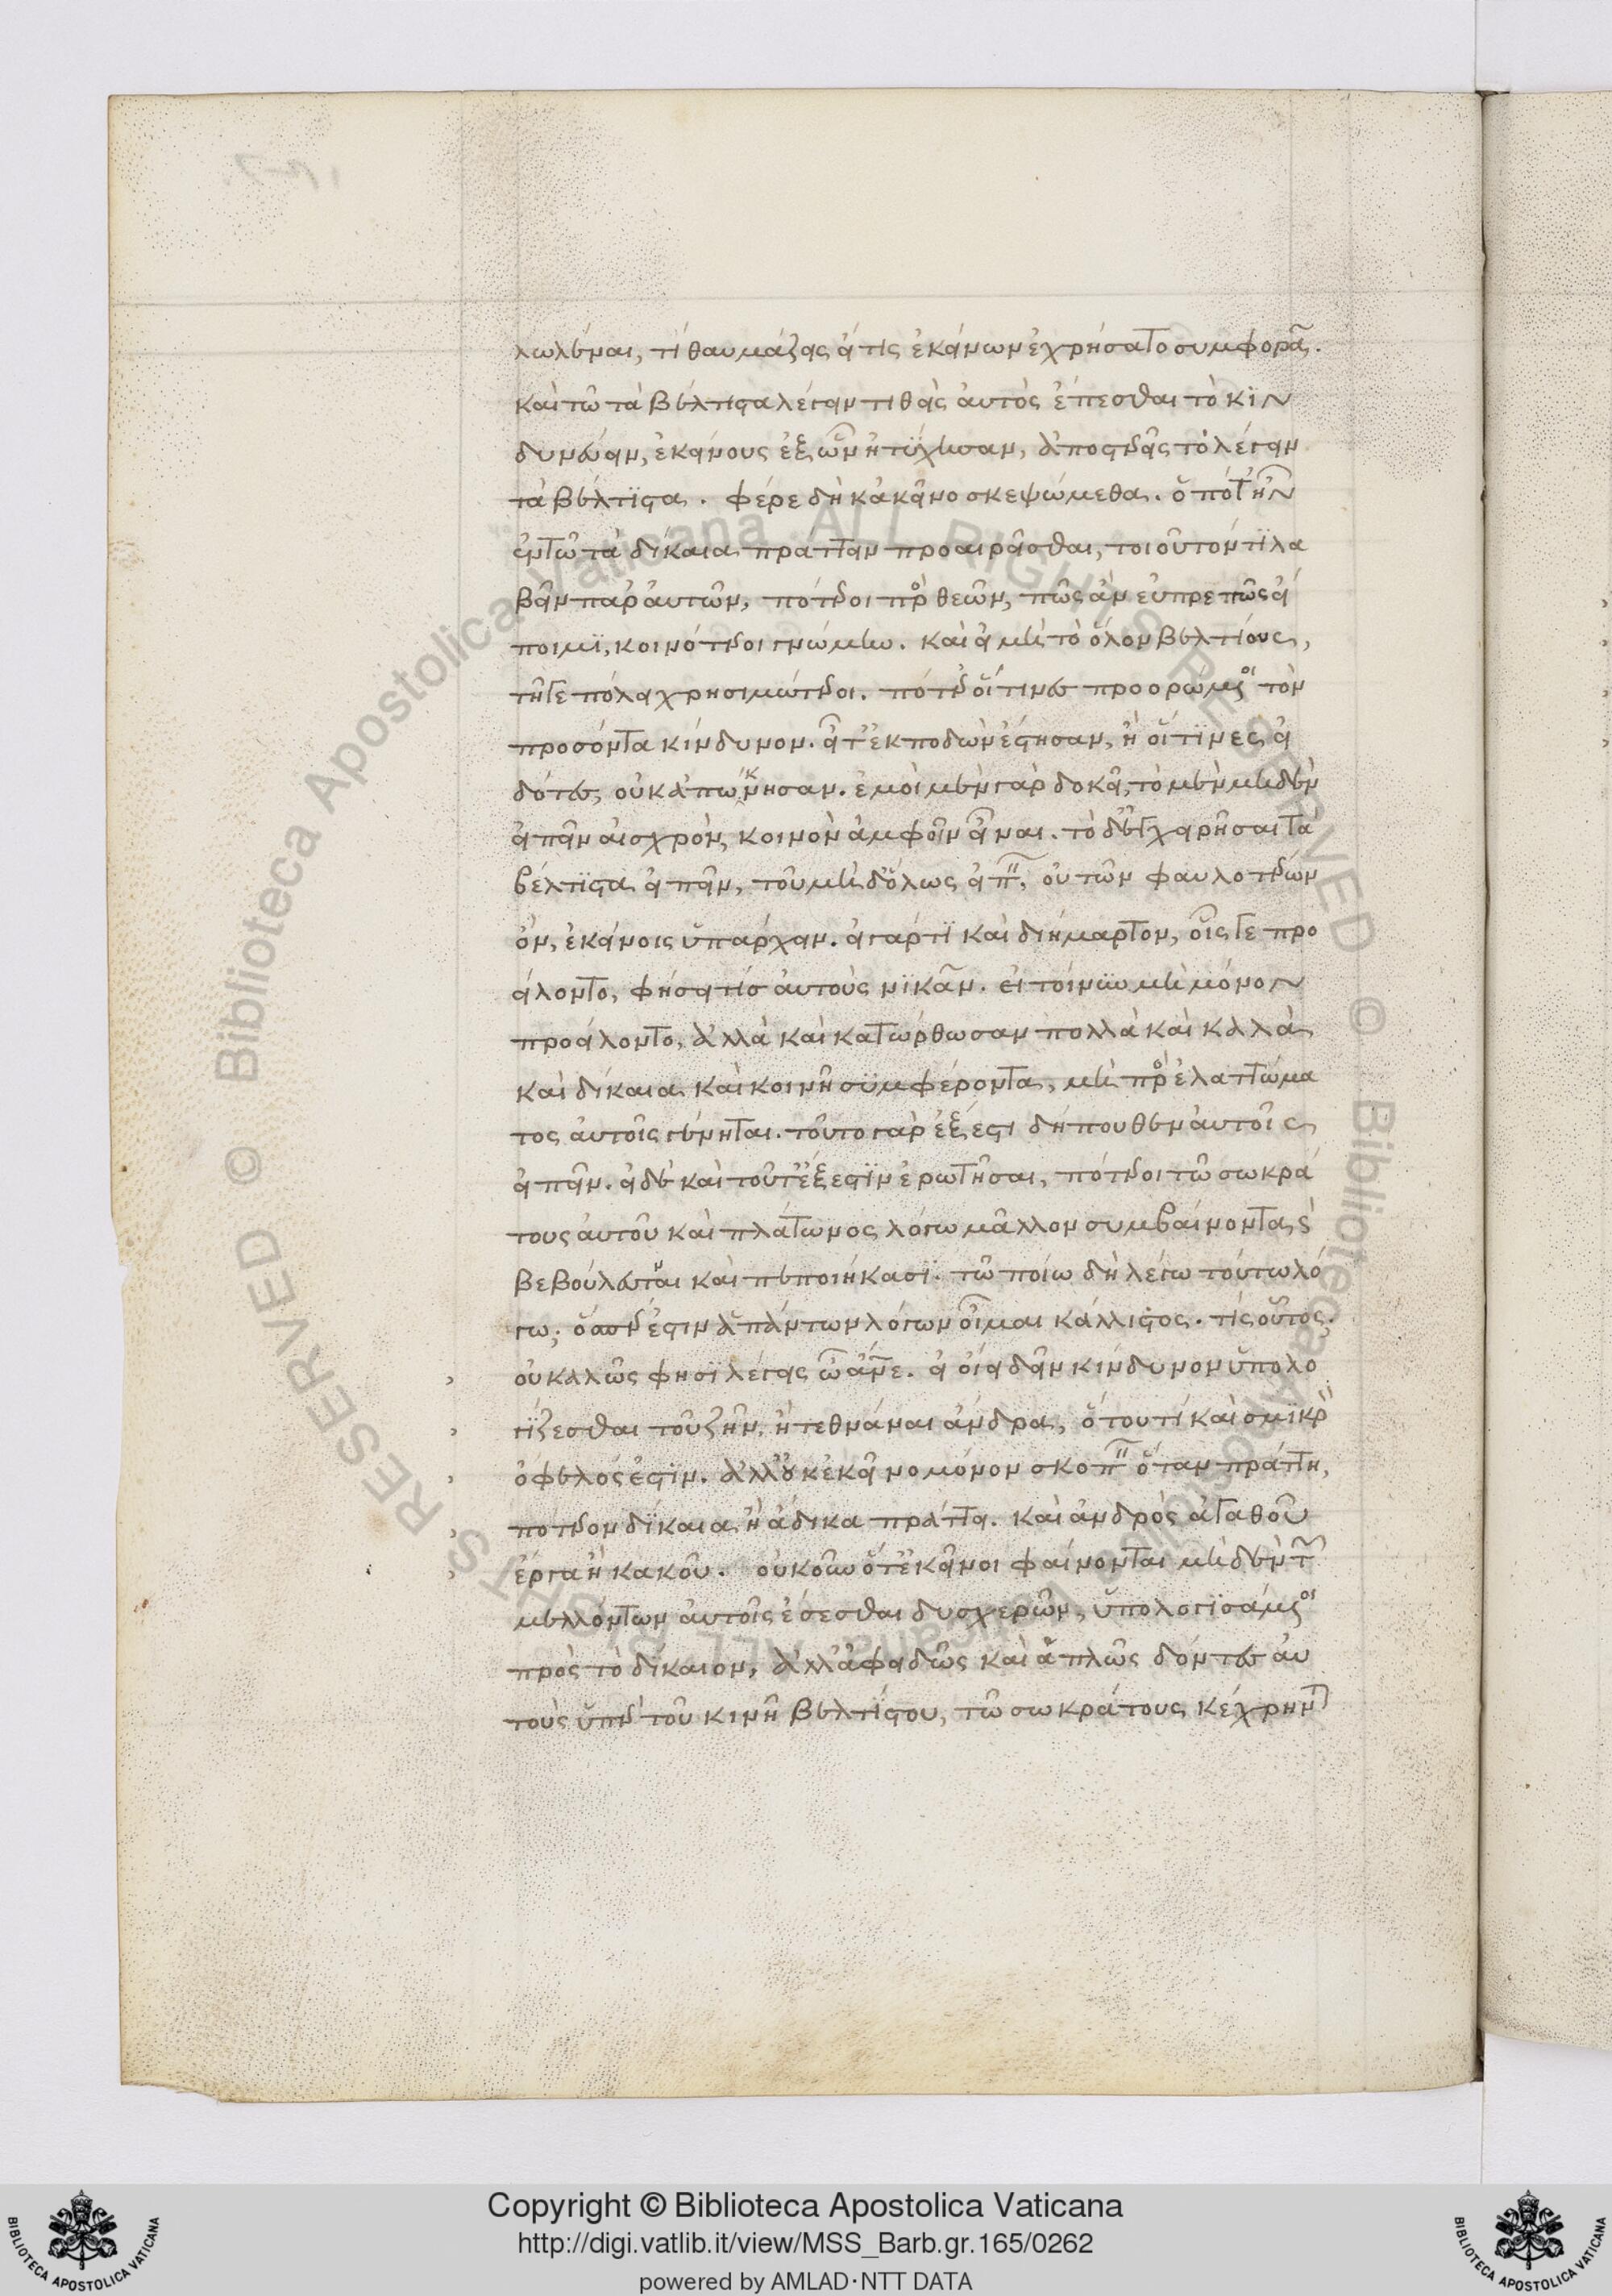 λωλέναι, τί θαυμάζεις εἴ τις ἐκείνων ἐχρήσατο συμφορᾶ.
καὶ τῶ τὰ βέλτιστα λέγειν τιθεὶς αὐτὸς ἕπεσθαι τὸ κιν
δυνεύειν, ἐκείνους ἐξ ὧν ἠτύχησαν, ἀποστερεῖς τὸ λέγειν
τὰ βέλτιστα. φέρε δὴ κἀκεῖνο σκεψώμεθα. ὁπότ' ἦν
ἐν τῶ τὰ δίκαια πράττειν προαιρεῖσθαι, τοιοῦτόν τι λα
βεῖν παρ' αὐτῶν, πότεροι πρὸς θεῶν, πῶς ἂν εὐπρεπῶς εἴ
ποιμι, κοινότεροι γνώμην. καὶ εἰ μὴ τὸ ὅλον βελτίους,
τῆ γε πόλει χρησιμώτεροι. πότερ' οἵτινες προορώμενοι τὸν
προσόντα κίνδυνον. εἶτ' ἐκποδὼν ἔστησαν, ἢ οἵτινες εἰ
δότες, οὐκ ἀπώκνησαν. ἐμοὶ μὲν γὰρ δοκεῖ, τὸ μὲν μηδὲν
εἰπεῖν αἰσχρὸν, κοινὸν ἀμφοῖν εἶναι. τὸ δ' ἐγχειρῆσαι τὰ
βέλτιστα εἰπεῖν, τοῦ μηδ' ὅλως εἰπεῖν, οὐ τῶν φαυλοτέρων
ὂν, ἐκείνοις ὑπάρχειν. εἰ γάρ τι καὶ διήμαρτον, οἷς γε προ
είλοντο, φήσει τίσ αὐτοὺς νικᾶν. εἰ τοίνυν μὴ μόνον
προείλοντο, ἀλλὰ καὶ κατώρθωσαν πολλὰ καὶ καλὰ
καὶ δίκαια καὶ κοινῆ συμφέροντα, μὴ πρὸς ἐλαττώμα
τος αὐτοῖς γένηται. τοῦτο γὰρ ἔξεστι δήπουθεν αὐτοῖς
εἰπεῖν. εἰ δὲ καὶ τοῦτ' ἔξεστιν ἐρωτῆσαι, πότεροι τῶ σωκρά
τους αὐτοῦ καὶ πλάτωνος λόγω μᾶλλον συμβαίνοντας
βεβούλευνται καὶ πεποιήκασι. τῶ ποίω δὴ λέγω τούτω λό
γω; ὅσπερ ἐστὶν ἁπάντων λόγων οἶμαι κάλλιστος. τίς οὗτος.
οὐ καλῶς φησὶ λέγεις ὦ ἄνθρωπε. εἰ οἴει δεῖν κίνδυνον ὑπολο
γίζεσθαι τοῦ ζῆν, ἢ τεθνάναι ἄνδρα, ὅτου τί καὶ σμικρὸν
ὄφελός ἐστιν. ἀλλ' οὐκ ἐκεῖνο μόνον σκοπεῖν ὅταν πράττη,
πότερον δίκαια ἢ ἄδικα πράττει. καὶ ἀνδρὸς ἀγαθοῦ
ἔργα ἢ κακοῦ. οὐκοῦν ὅτ' ἐκεῖνοι φαίνονται μηδὲν τῶν
μελλόντων αὐτοῖς ἔσεσθαι δυσχερῶν, ὑπολογισάμενοι
πρὸς τὸ δίκαιον, ἀλλ' ἀφειδῶς καὶ ἁπλῶς δόντες αὑ
τοὺς ὑπὲρ τοῦ κινῆ βελτίστου, τῶ σωκράτους κέχρηνται